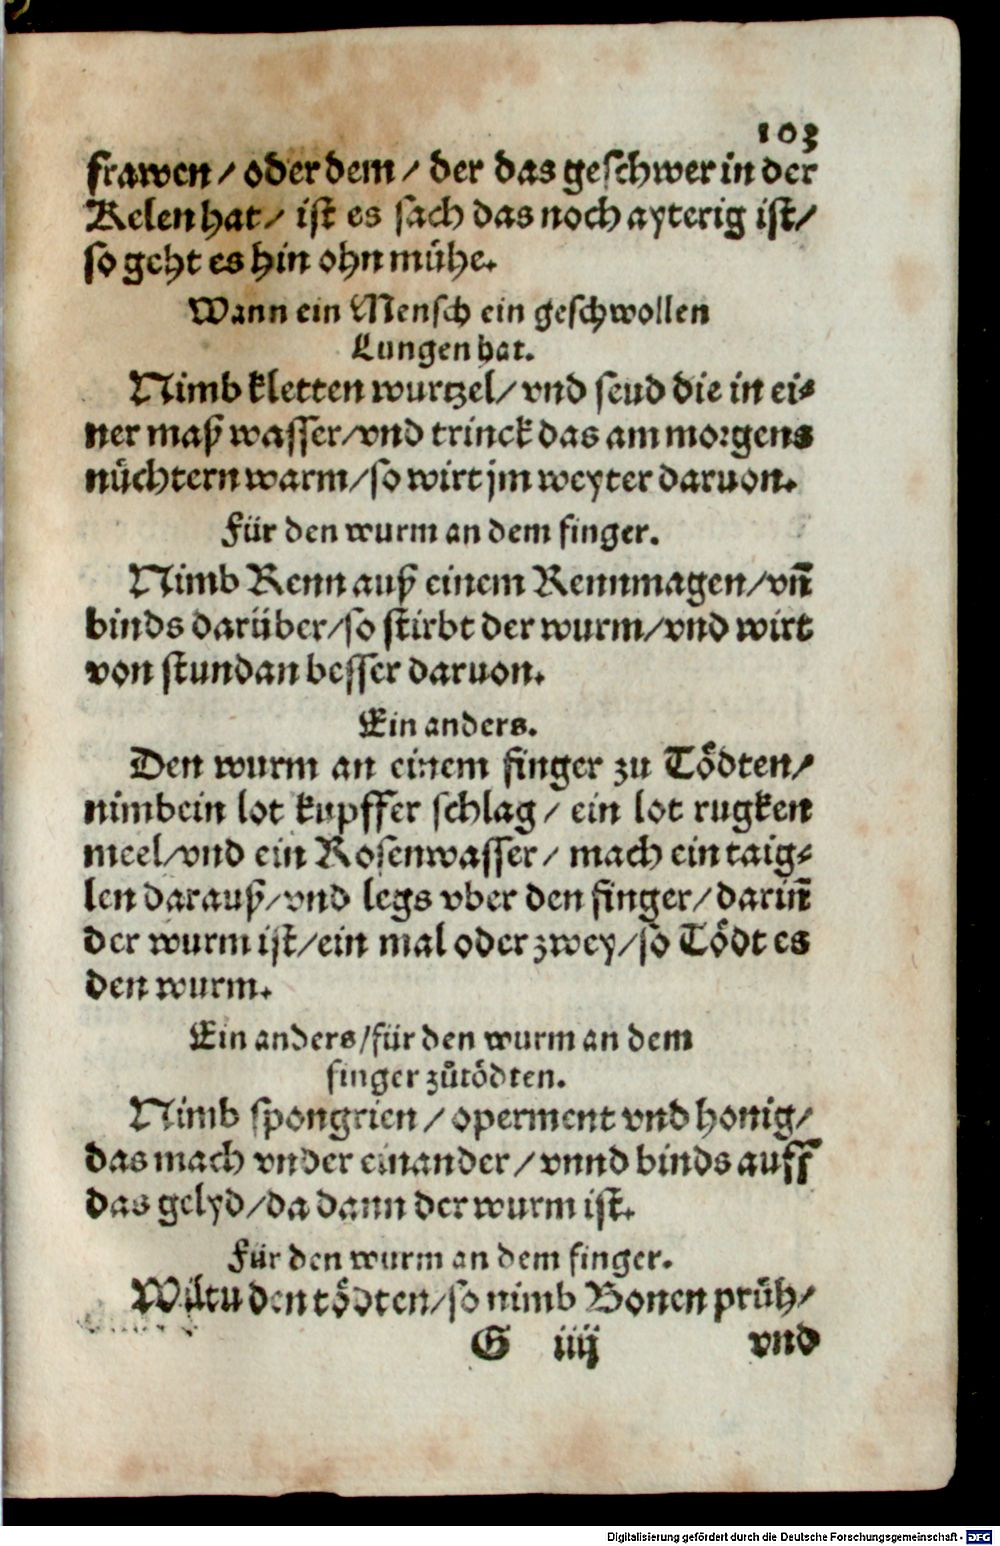 103
frawen / oder dem / der das geschwer in der
Kelen hat / ist es sach das noch ayterig ist /
so geht es hin ohn mühe.
Wann ein Mensch ein geschwollen
Lungen hat.
Nimb kletten wurtzel / vnd seud die in ei⸗
ner maß wasser / vnd trinck das am morgens
nüchtern warm / so wirt jm weyter daruon.
Für den wurm an dem finger.
Nimb Renn auß einem Rennmagen / vñ
binds darüber / so stirbt der wurm / vnd wirt
von stundan besser daruon.
Ein anders.
Den wurm an einem finger zu Tödten /
nimb ein lot kupffer schlag / ein lot rugken
meel / vnd ein Rosenwasser / mach ein taig⸗
len darauß / vnd legs vber den finger / dariñ
der wurm ist / ein mal oder zwey / so Tödt es
den wurm.
Ein anders / für den wurm an dem
finger zůtödten.
Nimb spongrien / operment vnd honig /
das mach vnder einander / vnnd binds auff
das gelyd / da dann der wurm ist.
Für den wurm an dem finger.
Wiltu den tödten / so nimb Bonen prüh /
G iiij vnd
Digitalisierung gefördert durch die Deutsche Forschungsgemeinschaft - DFG